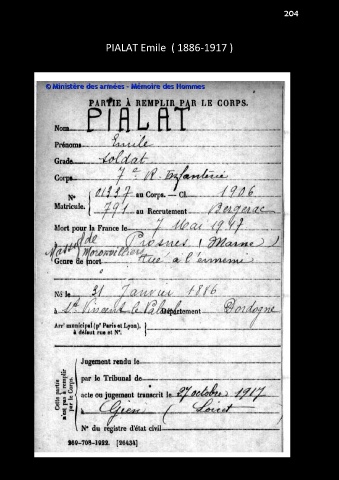 204
PIALAT Emile ( 1886-1917 )
© Ministère des armées - Mémoire des Hommes
PARTIE À REMPLIR PAR LE CORPS.
Nom PIALAT
Prénoms Emile
Grade soldat
Corps 7e R. Infanterie
N° Matricule. 01337 au Corps. — Cl. 1906
791 au Recrutement Bergerac
Mort pour la France le 7 Mai 1917
à Prosnes (Marne)
Massif de Moronvilliers
Genre de mort Tué à l'ennemi
Né le 31 Janvier 1886
à St Vincent le Paluel Département Dordogne
Arrt municipal (pr Paris et Lyon), à défaut rue et N°.
Cette partie n'est pas à remplir par le Corps.
Jugement rendu le
par le Tribunal de
acte ou jugement transcrit le 27 octobre 1917
à Gien (Loiret
N° du registre d'état civil
269-708-1922. [26434]